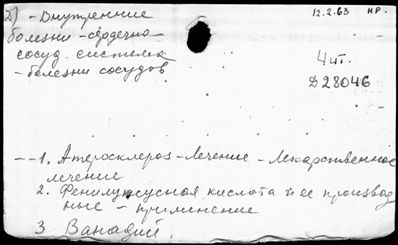 2) - Внутренние
12.2.63 НР.
болезни - сердечно
сосуд. система
- болезни сосудов
4 шт.
D28046
-- 1. Атеросклероз - Лечение - Лекарственное
лечение
2. Фенилуксусная кислота и ее производ
ные - применение
3 Ванадий.